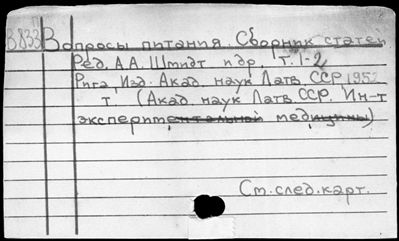 В833 Вопросы питания. Сборник статей
Ред. А.А. Шмидт и др. т. 1-2
Рига, Изд. Акад. наук Латв. ССР 1952
т. (Акад. наук Латв. ССР. Ин-т
экспериментальной медицины)
См. след. карт.